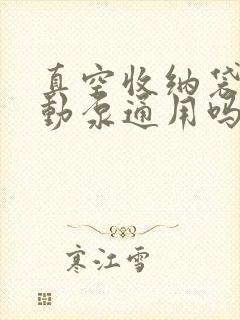 真空收纳袋
动泵通用吗
寒江雪